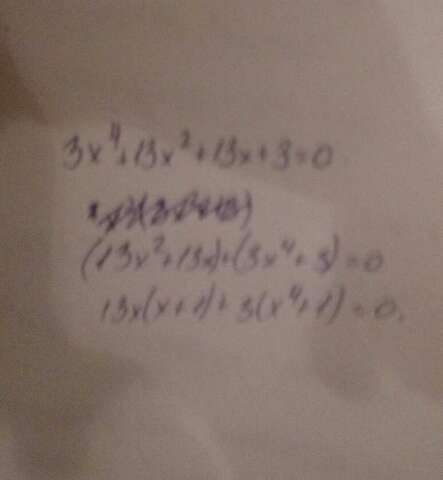 3x⁴+13x²+13x+3=0
(13x²+13x)+(3x⁴+3)=0
13x(x+1)+3(x⁴+1)=0.